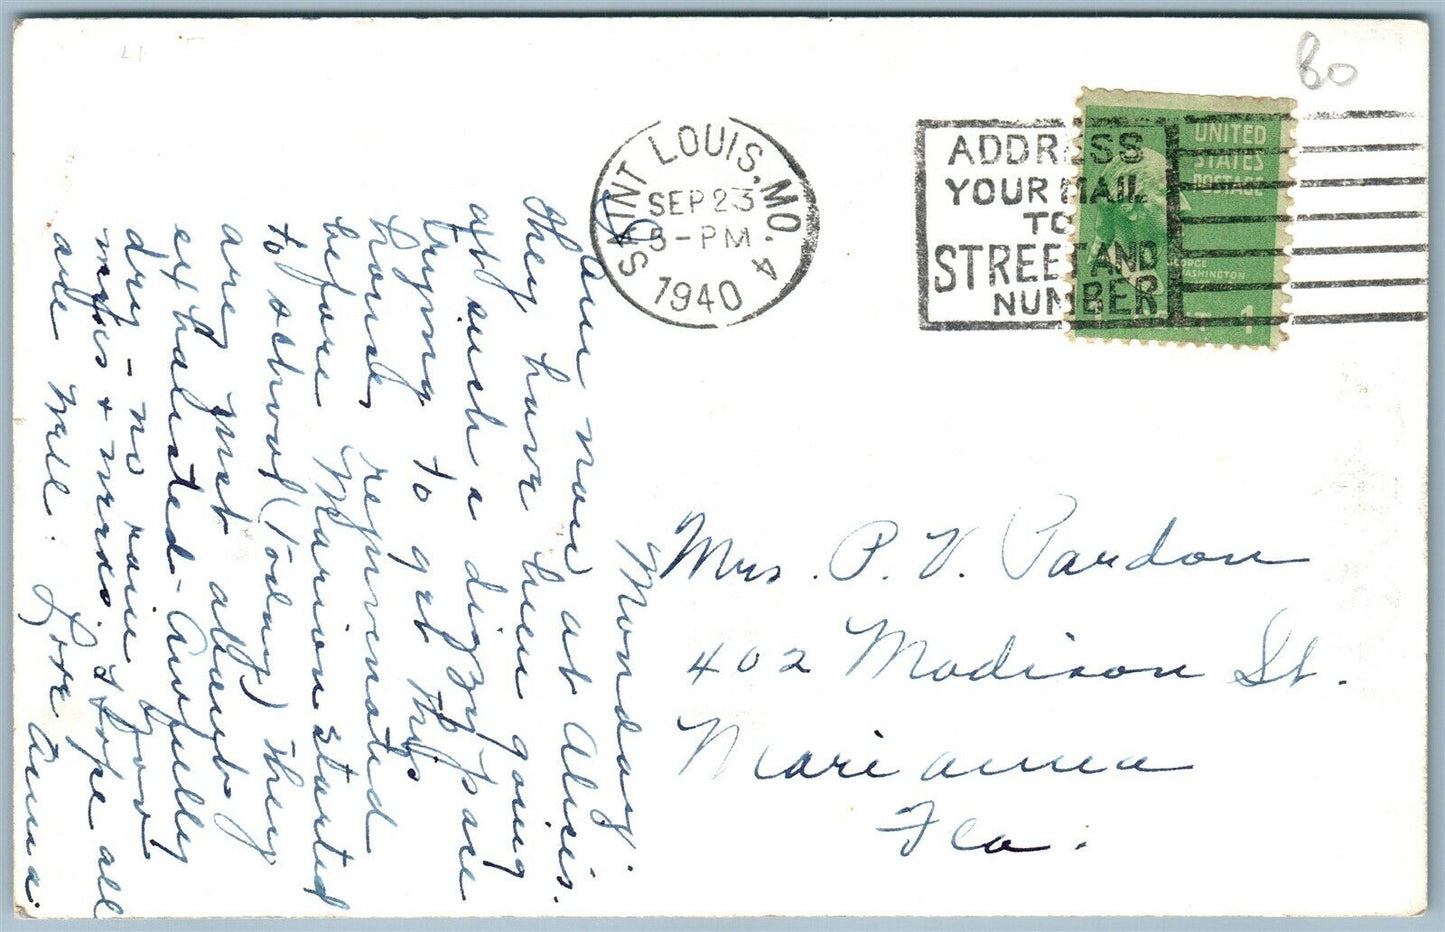 80
SAINT LOUIS, MO. 4
SEP 23
5-PM
1940
ADDRESS
YOUR MAIL
TO
STREET AND
NUMBER
UNITED
STATES
POSTAGE
GEORGE
WASHINGTON
1 CENT 1
Monday.
Am now at Alice's.
They have been going
at such a dizzy pace
trying to get this
house renovated
before Marion started
to school (today) They
are just about
exhausted - Awfully
dry - no rain for
mos + mos. I hope all
are well. Love Anna.
Mrs. P. V. Pardon
402 Madison St.
Marianna
Fla.